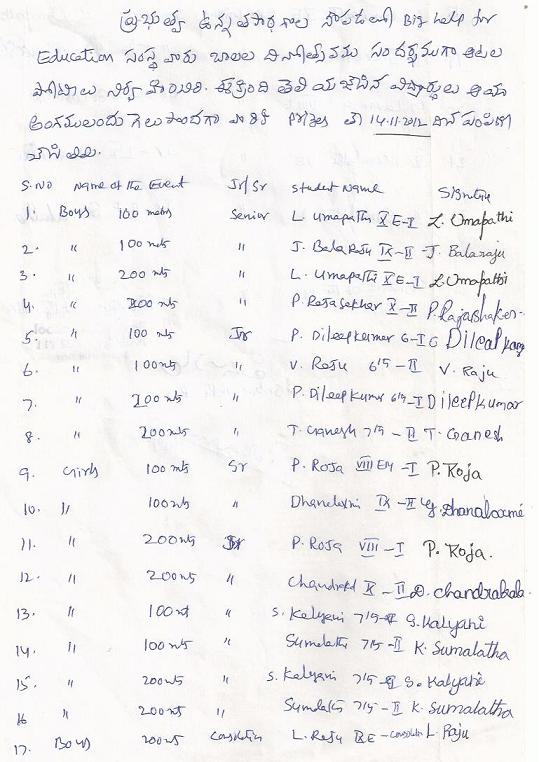 ప్రభుత్వ ఉన్నత పాఠశాల Big help for
Education సంస్థ వారు బాలల దినోత్సవము సందర్భముగా ఆటల
పోటీలు నిర్వహించిరి. ఈ క్రింది తెలియజేసిన విద్యార్థులు ఆయా
అంశములందు గెలుపొందగా వారికి prizes 14.11.2012
S.No Name of the Event Jr/Sr Student Name Signature
1. Boys 100 mets Senior L. Umapathi X E-I L. Umapathi
2. " 100 mts " J. BalaRaju IX-II J. Balaraju
3. " 200 mts " L. Umapathi X E-I L. Umapathi
4. " 200 mts " P. Rajasekhar X-II P. Rajashaker
5 " 100 mts Jr P. Dileepkumar 6-I Dileep
6. " 100 mts " V. Raju 6th-II V. Raju
7. " 200 mts " P. Dileepkumar 6th-I Dileepkumar
8. " 200 mts " T. Ganesh 7th-II T. Ganesh
9. Girls 100 mts Sr P. Roja VIII EM-I P. Roja
10. " 100 mts " Dhanalaxmi IX-II Dhanalaxmi
11. " 200 mts P. Roja VIII-I P. Roja.
12. " 200 mts " X-II D. chandrakala.
13. " 100 mt " S. Kalyani 7th-II S. Kalyani
14. " 100 mts " Sumalatha 7th-II K. Sumalatha
15. " 200 mts " S. Kalyani 7th-II S. Kalyani
16 " 200 mts " Sumalatha 7th-II K. Sumalatha
17. Boys 200 mts Consolation L. Raju IX E-consolation L. Raju